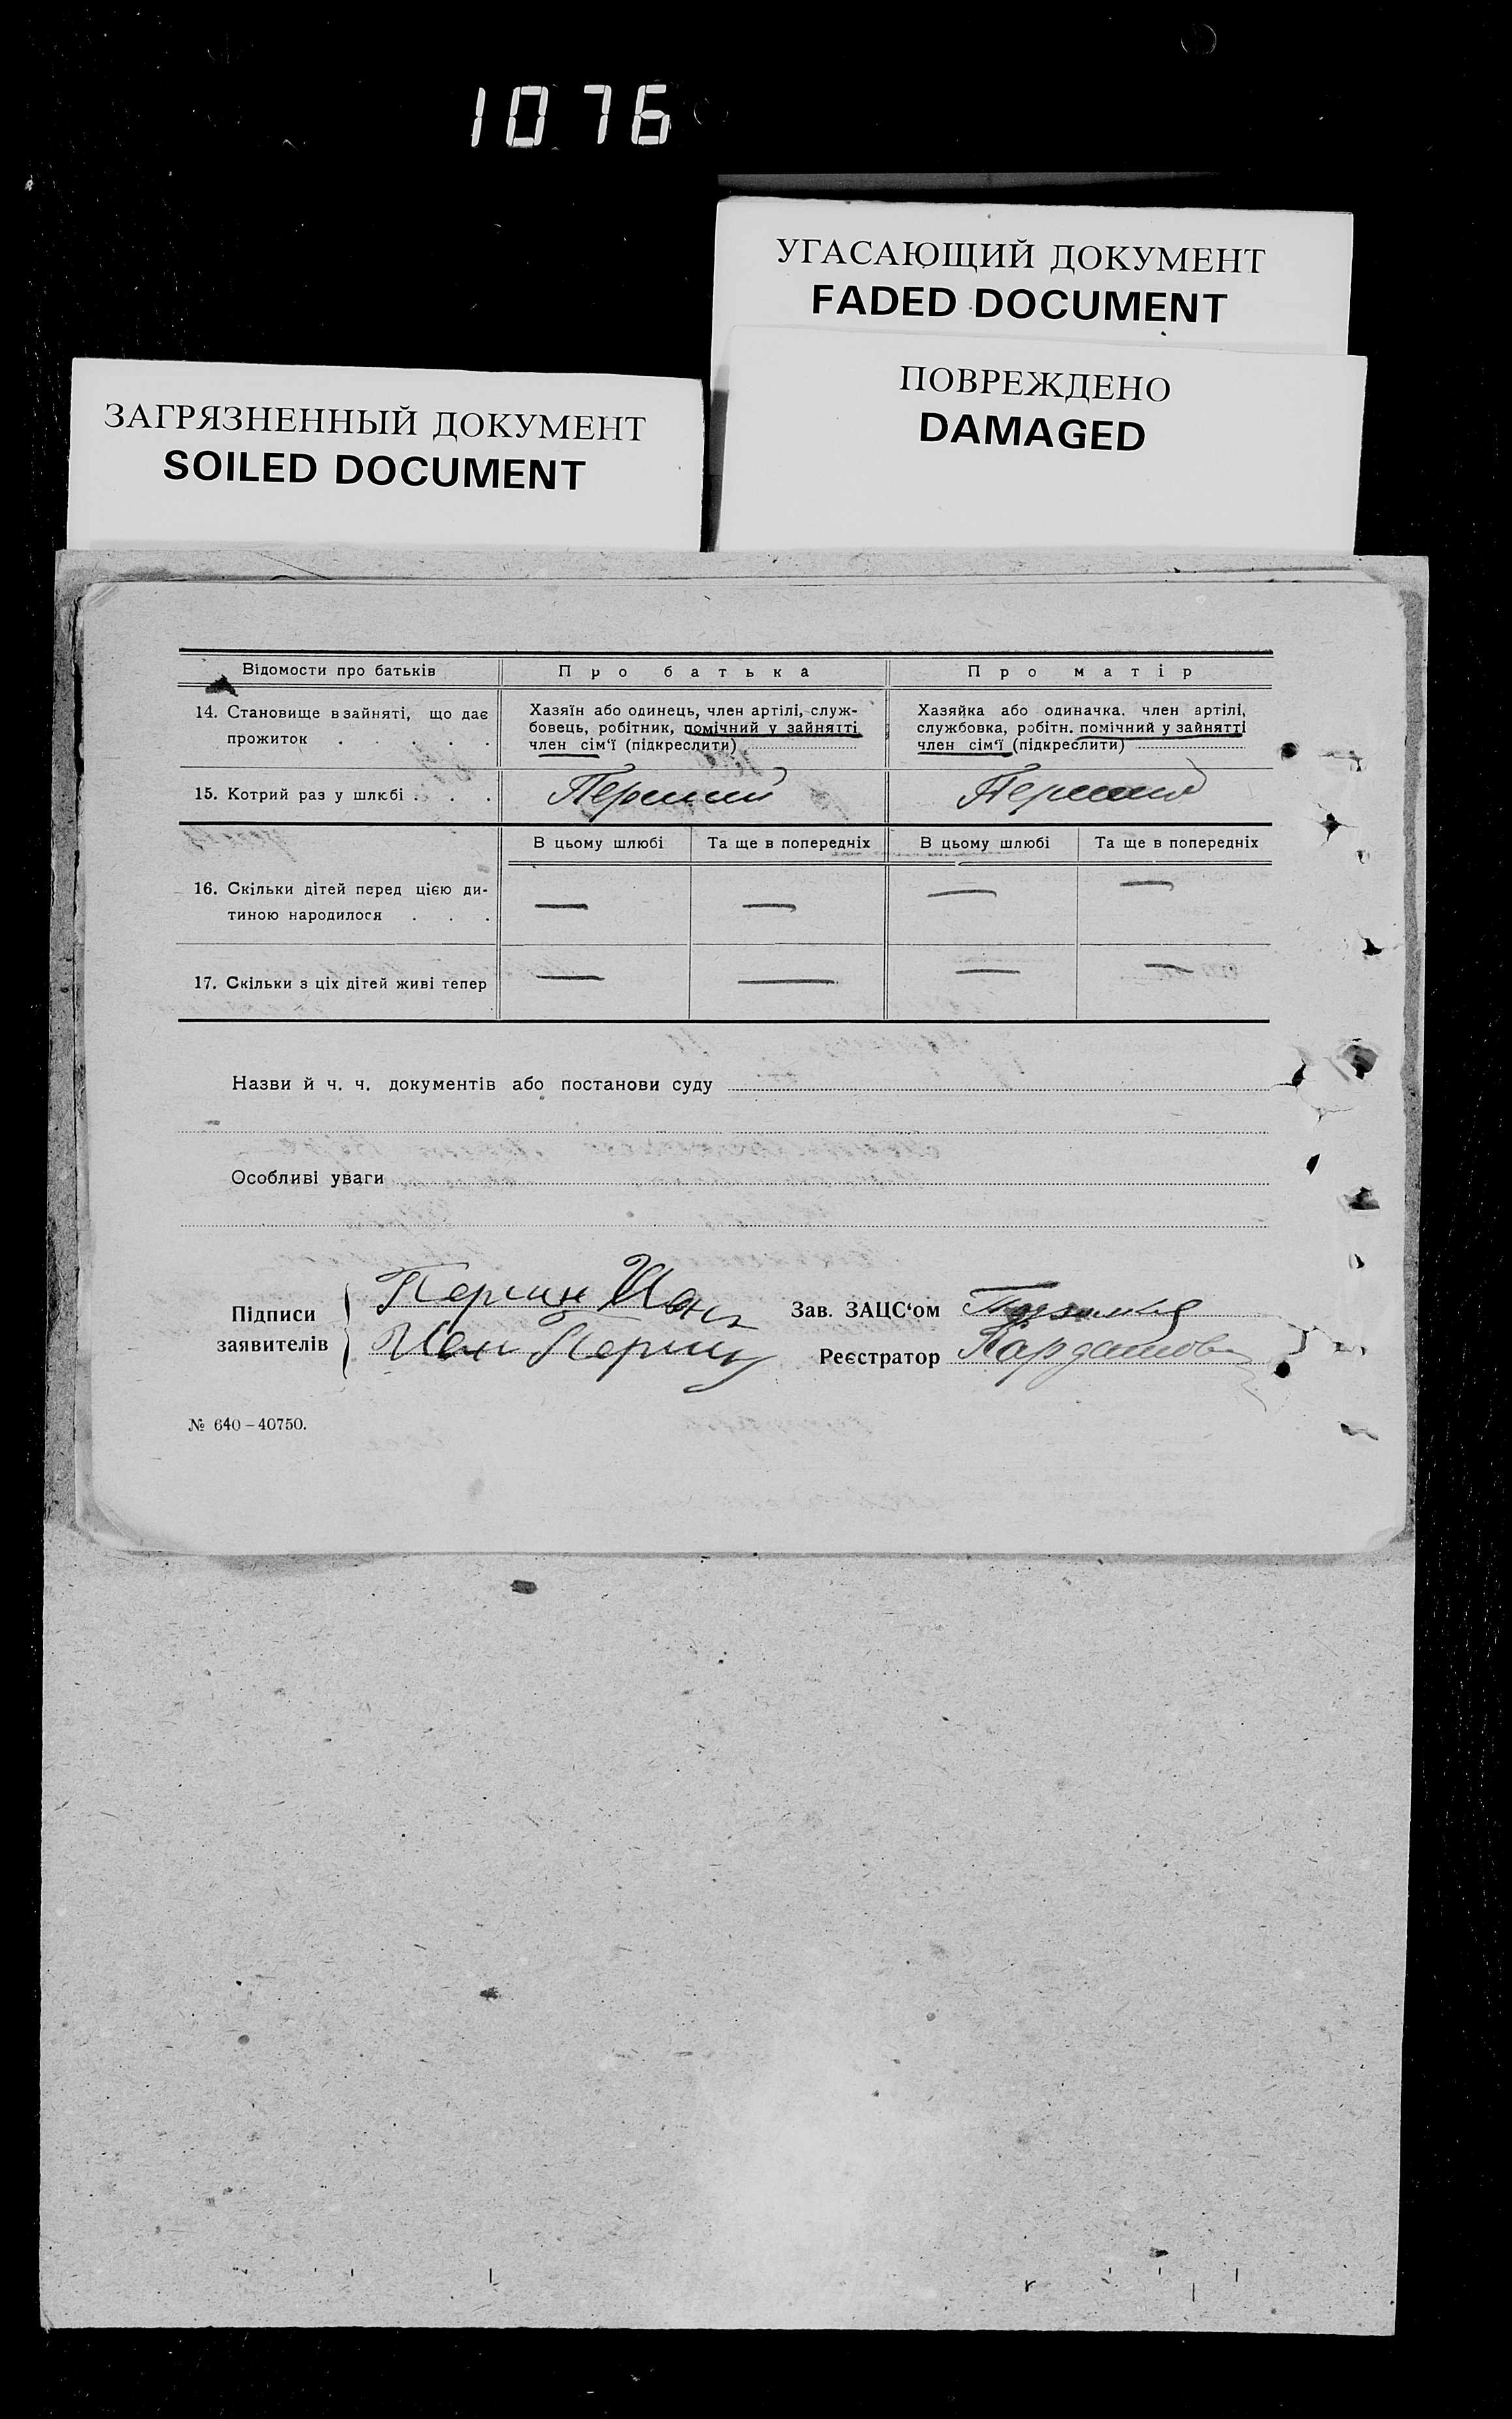 1076
УГАСАЮЩИЙ ДОКУМЕНТ
FADED DOCUMENT
ПОВРЕЖДЕНО
DAMAGED
ЗАГРЯЗНЕННЫЙ ДОКУМЕНТ
SOILED DOCUMENT
Відомости про батьків Про батька Про матір
14. Становище в зайняті, що дає прожиток . . . . .
Хазяїн або одинець, член артілі, служ-
бовець, робітник, помічний у зайнятті
член сім'ї (підкреслити)
Хазяйка або одиначка, член артілі,
службовка, робітн. помічний у зайнятті
член сім'ї (підкреслити)
15. Котрий раз у шлюбі . . . Перший
В цьому шлюбі Та ще в попередніх В цьому шлюбі Та ще в попередніх
16. Скільки дітей перед цією ди-
тиною народилося . . . — — — —
17. Скільки з ціх дітей живі тепер — — — —
Назви й ч. ч. документів або постанови суду
Особливі уваги
Підписи
заявителів
Зав. ЗАЦС'ом
Реєстратор
№ 640-40750.